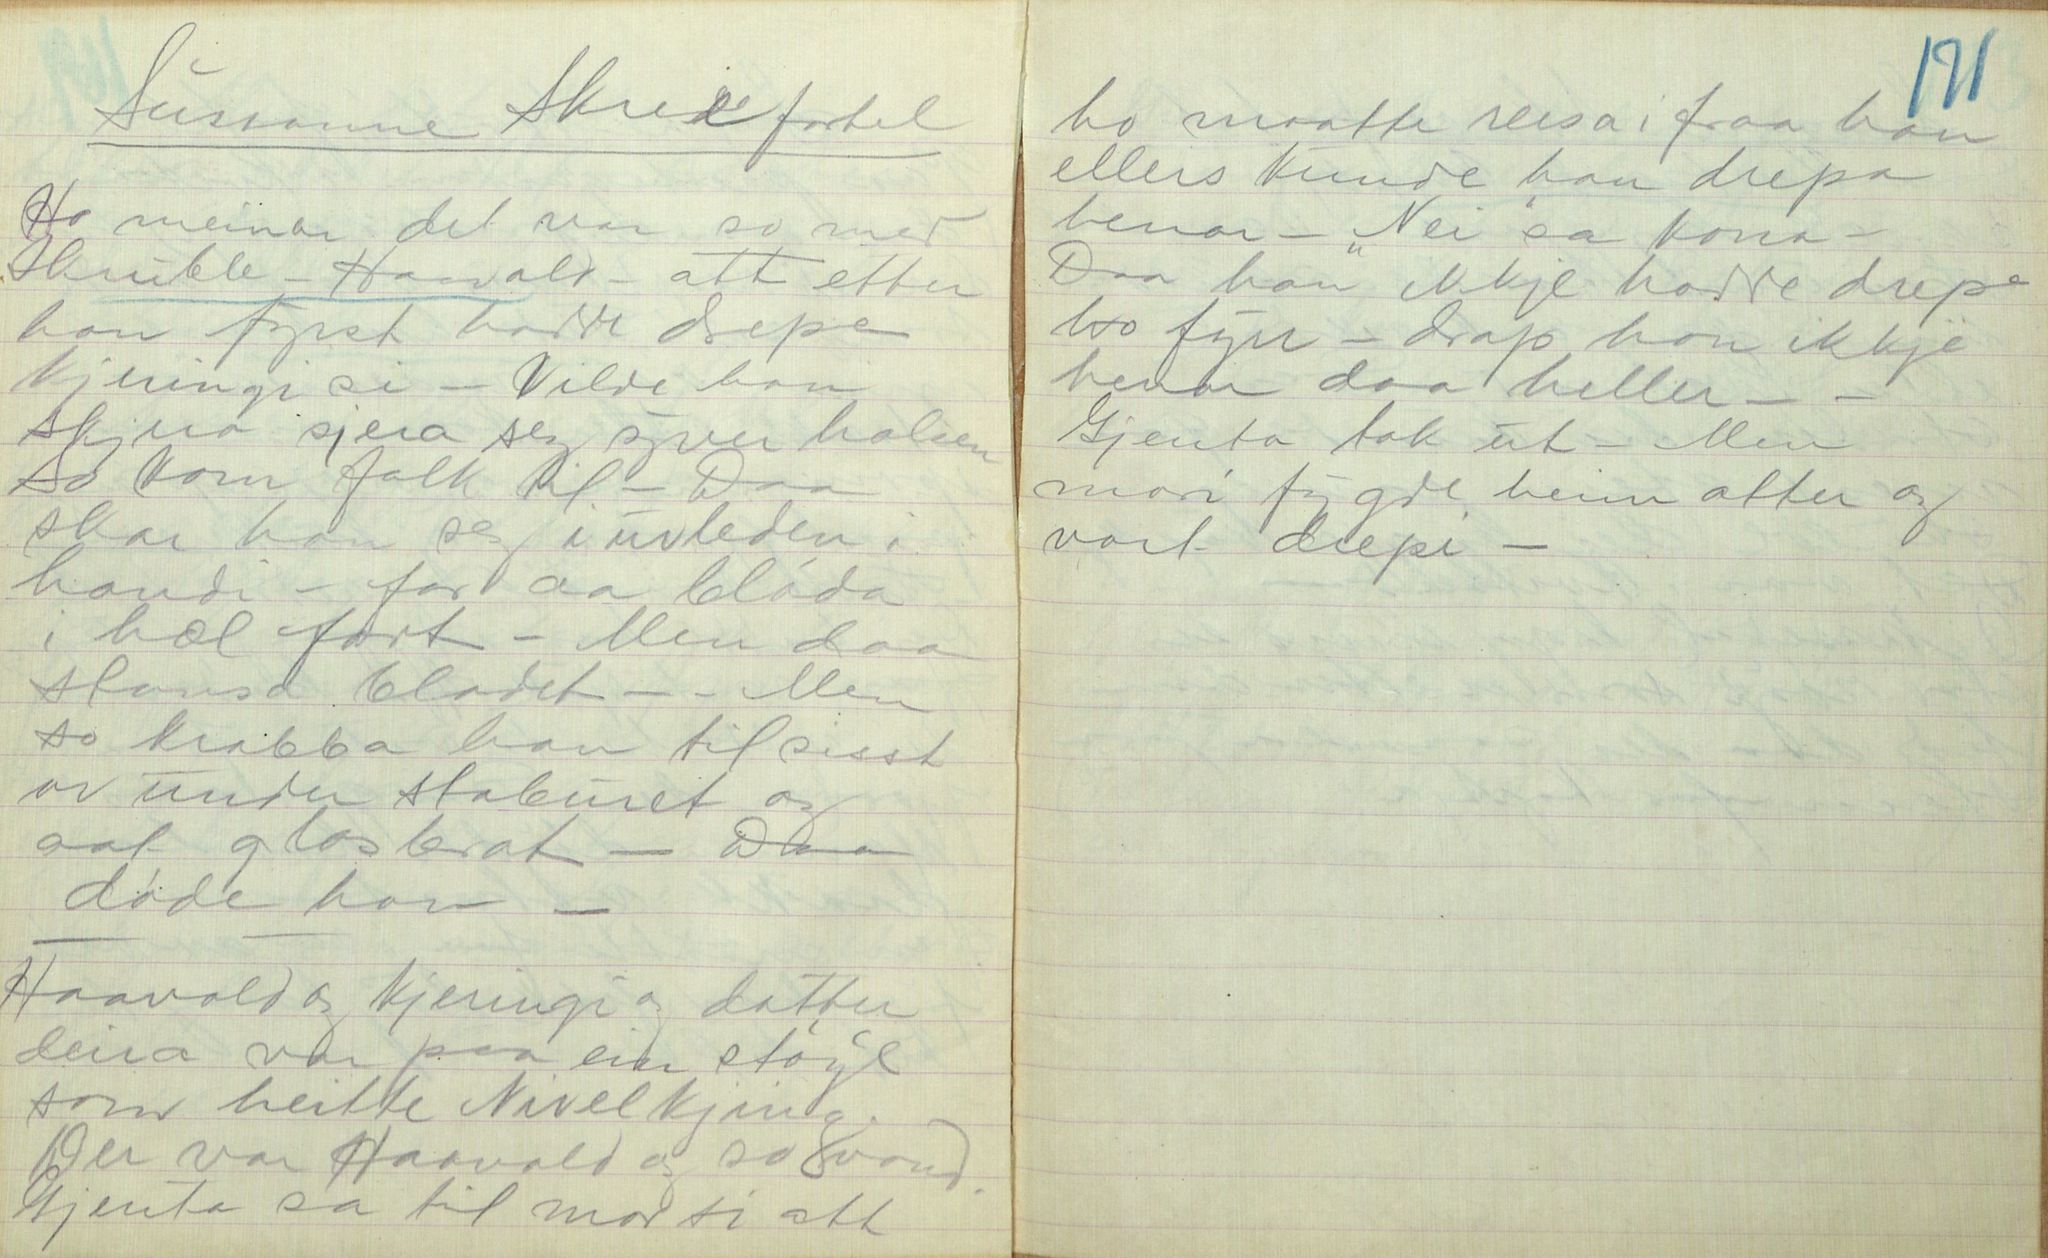 Sussanne Skreie fortel
Ho meinar det var so med
Skruble-Haavald - att etter
han fyrst hadde drepe
kjeringi si - Vilde han
skjera sjera seg yver halsen
so kom folk til - Daa
skar han seg i uvleden i
handi - for aa bløda
i hæl fort - Men daa
stansa blodet - - Men
so krabba han til sisst
av under staburet og
aat glasbrot - Daa
døde han -
Haavald og kjeringi og dotter
deira var paa ein støyl
som heitte Nivelkjing.
Der var Haavald og so vond.
Gjenta sa til mor si att
191
ho maatte reisa ifraa han
ellers kunde han drepa
henar - "Nei" sa kona -
Daa han ikkje hadde drepe
ho fyrr - drap han ikkje
henar daa heller - -
Gjenta tok ut - Men
mori fygde heim atter og
vart drepi -